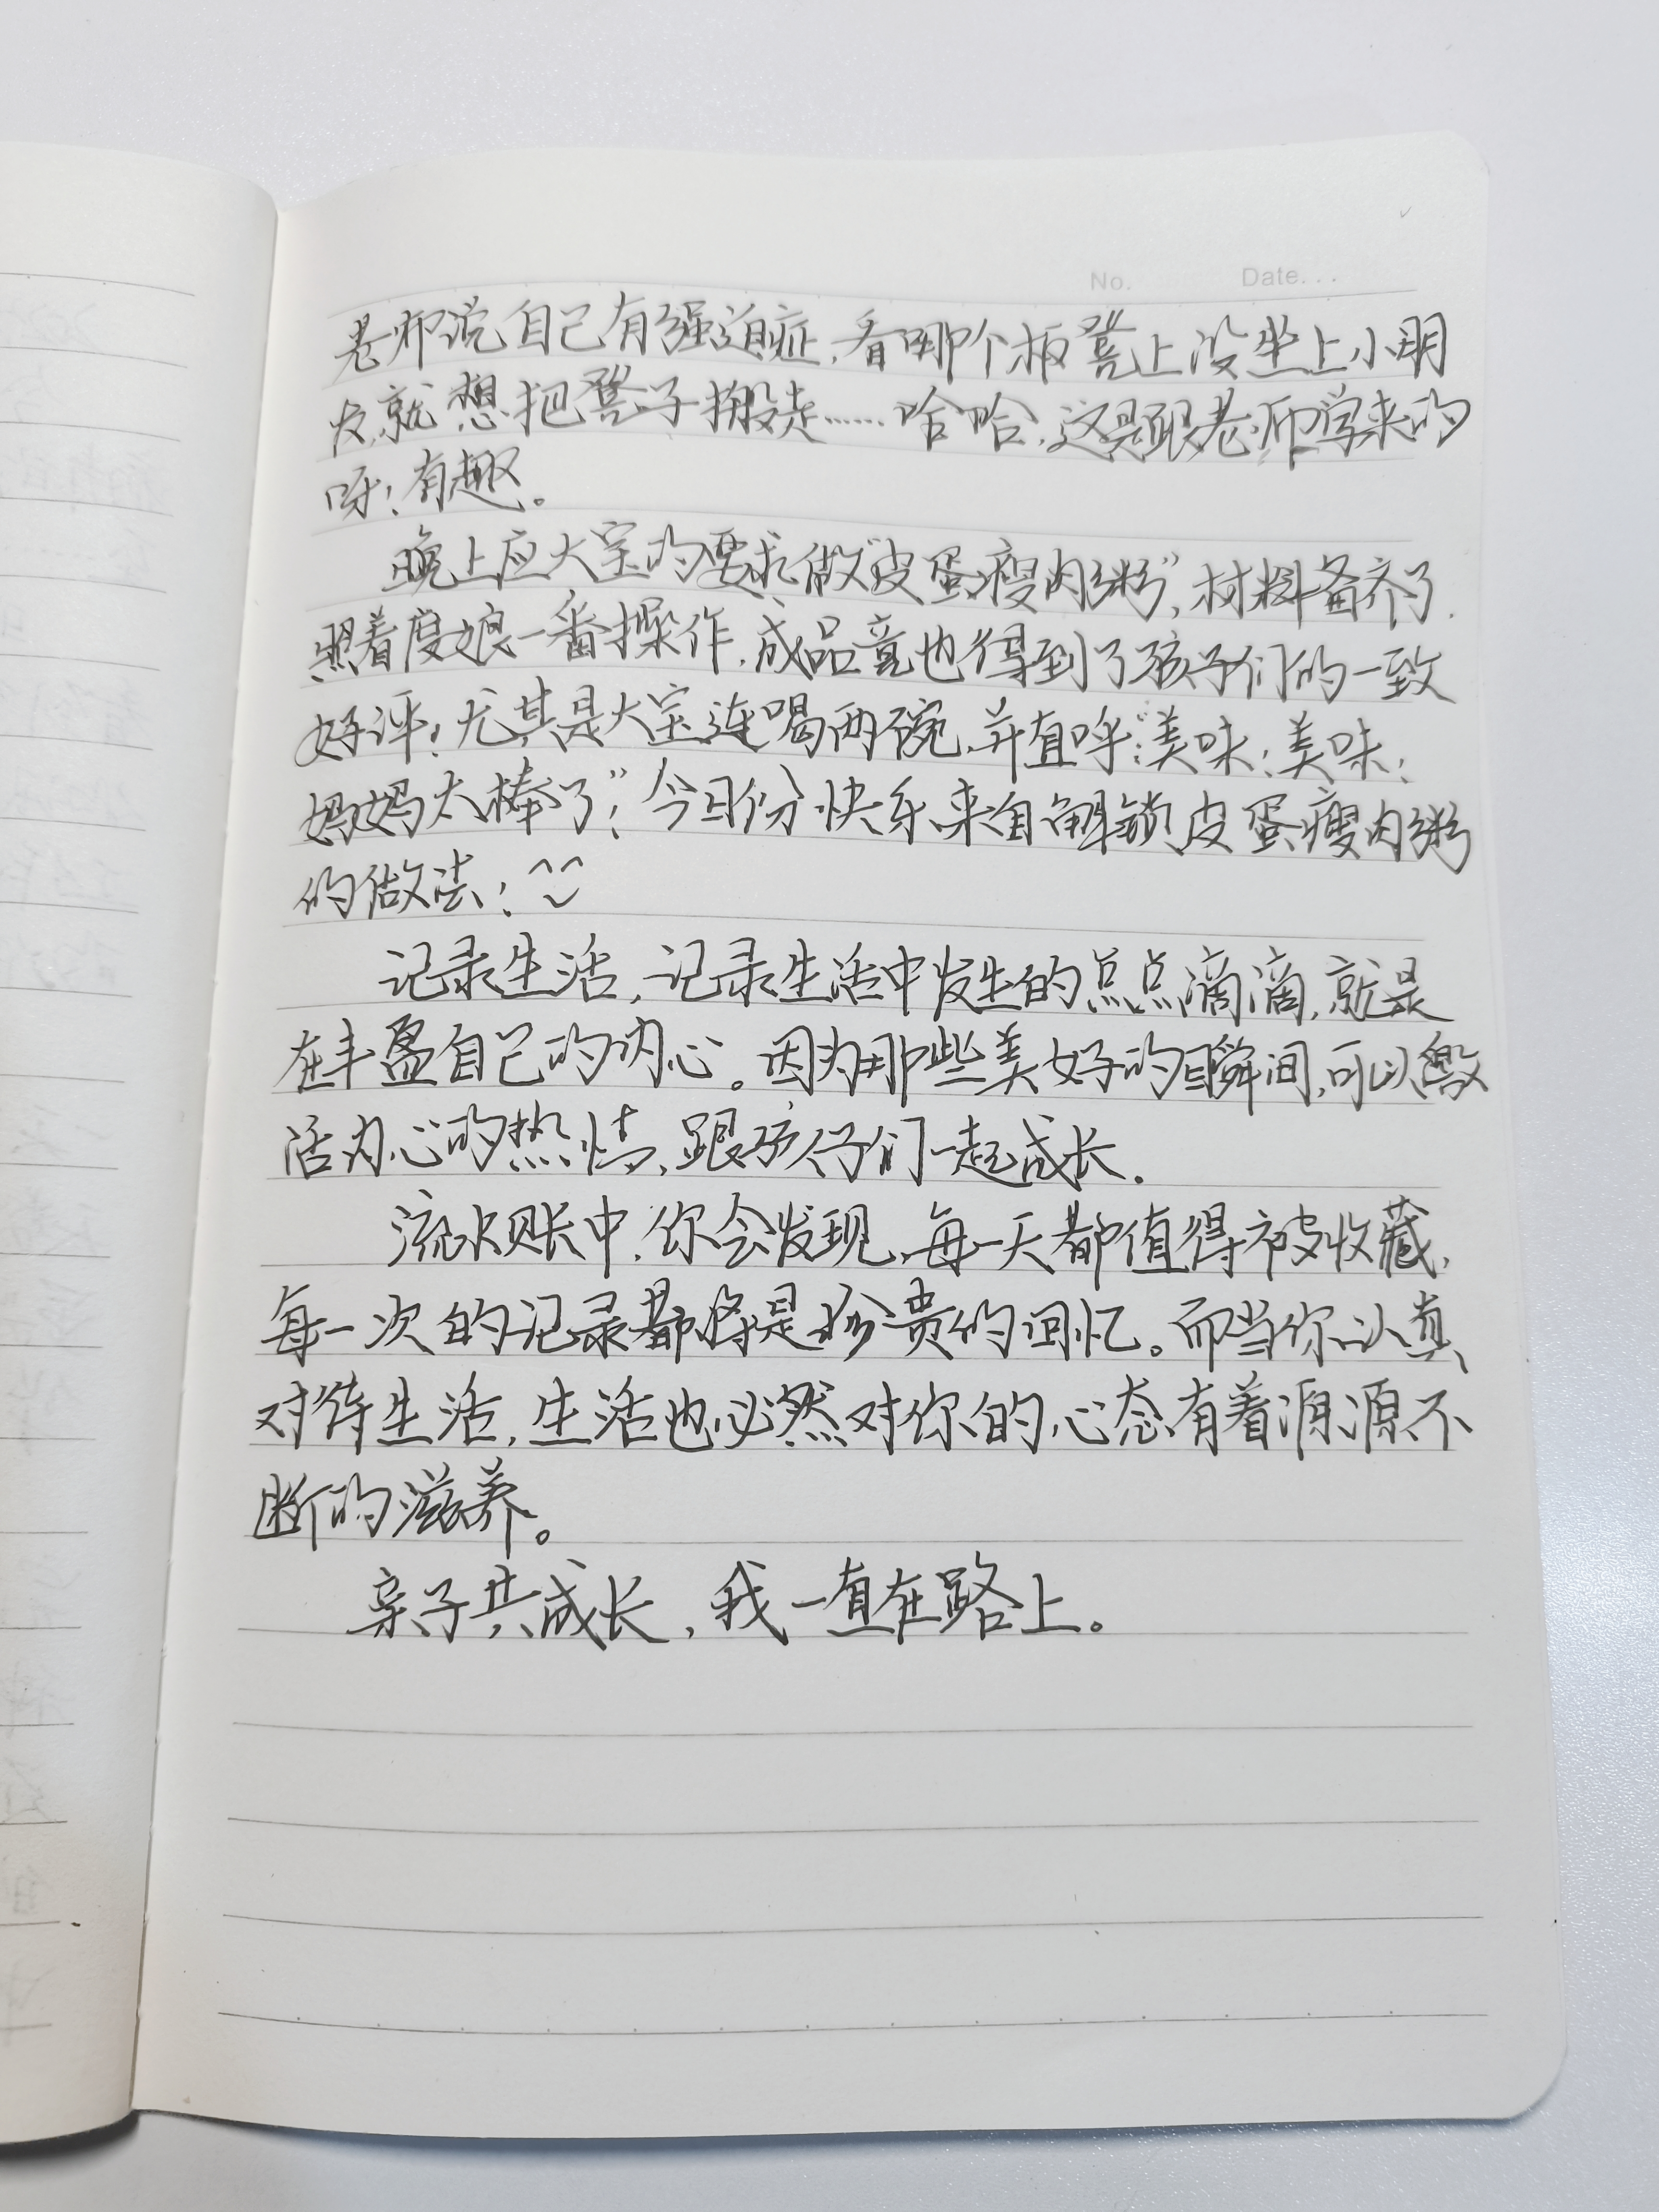 No.          Date...
老师说自己有强迫症,看哪个板凳上没坐上小朋
友,就想把凳子搬走……哈哈,这是跟老师学来的
呀!有趣。
晚上应大宝的要求,做“皮蛋瘦肉粥”,材料备齐了.
照着度娘一番操作,成品竟也得到了孩子们的一致
好评!尤其是大宝连喝两碗,并直呼:“美味!美味!
妈妈太棒了”!今日份快乐来自解锁皮蛋瘦肉粥
的做法!
记录生活,记录生活中发生的点点滴滴,就是
在丰盈自己的内心。因为那些美好的瞬间,可以激
活内心的热情,跟孩仔们一起成长.
流水账中,你会发现,每一天都值得被收藏,
每一次的记录都将是珍贵的回忆。而当你认真
对待生活,生活也必然对你的心态有着源源不
断的滋养。
亲子共成长,我一直在路上。